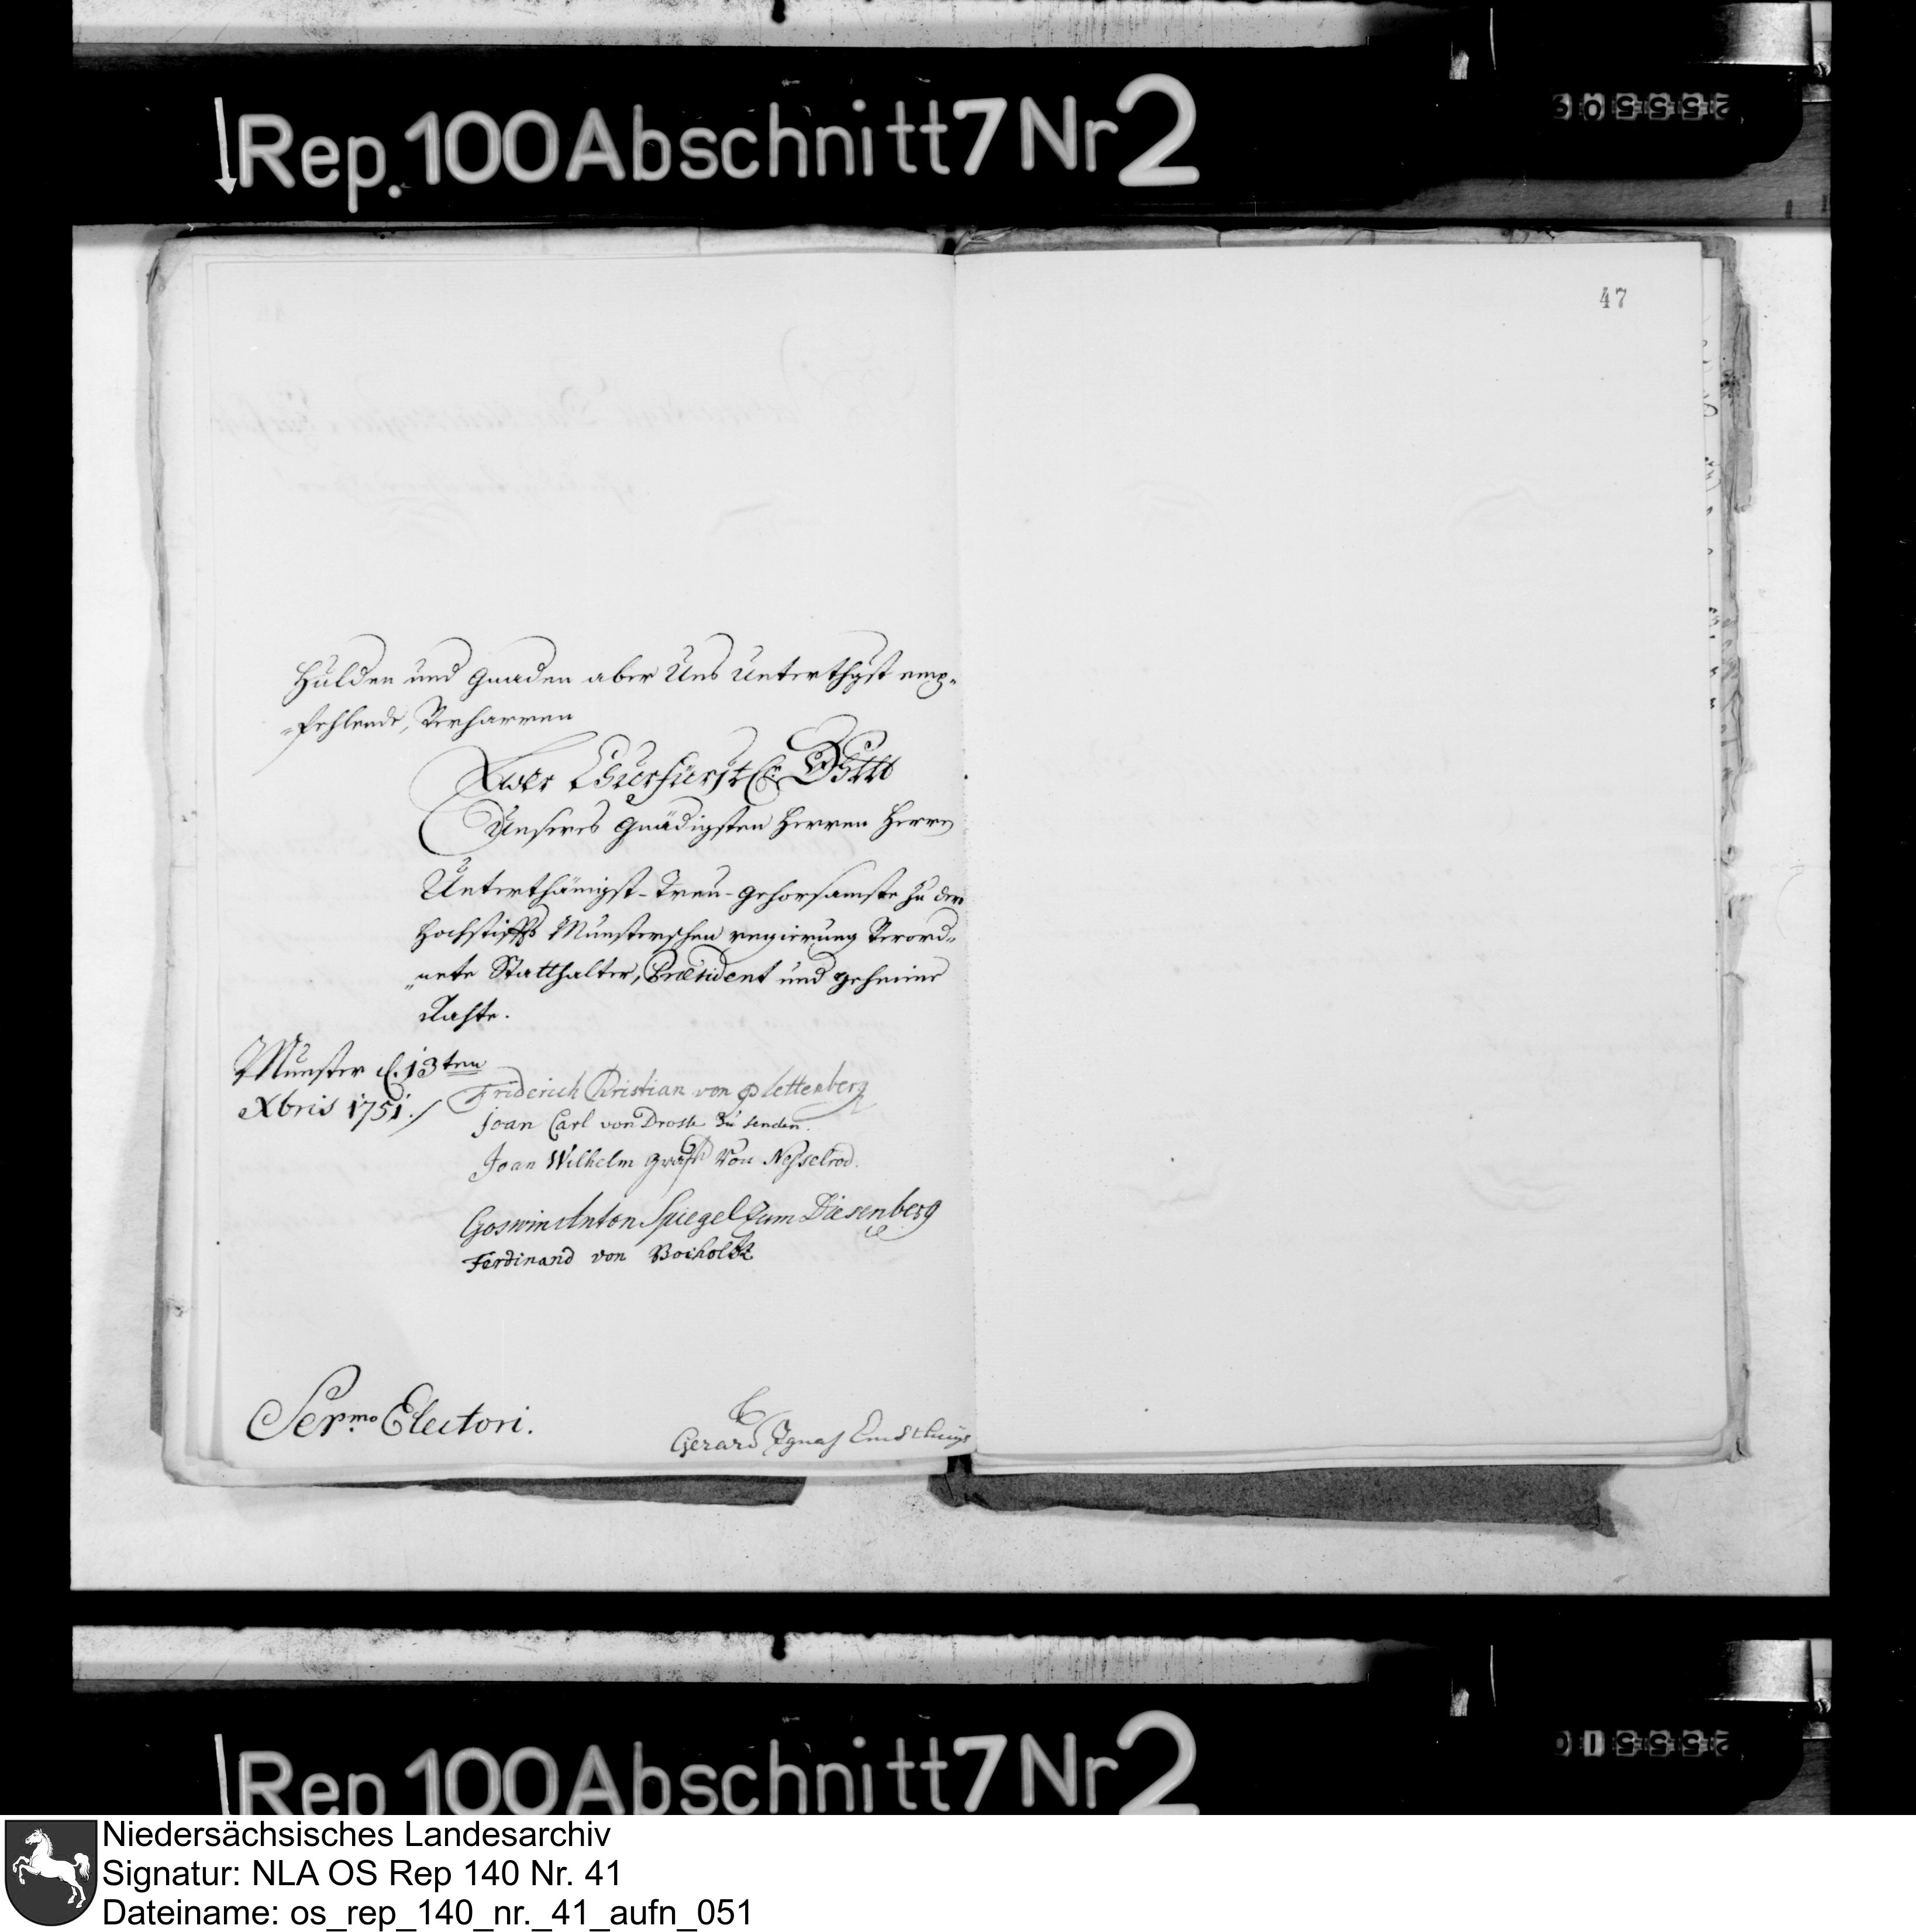 Rep. 100 Abschnitt 7 Nr 2
47
Hulden und Gnaden aber Uns Unterthgst emp-
-fehlende, Verharren
Ewer Churfürstl. Dhltt
Unseres Gnädigsten Herren Herrn
Unterthänigst-Treu-gehorsamste zu dero
Hochstiffts Münsterschen regierung Verord-
-nete Statthalter, Præsident und geheime
Rähte.
Münster d. 13ten
Xbris 1751.
Friderich Christian von Plettenberg
Joan Carl von Droste zu Senden.
Joan Wilhelm graff Von Nesselrod.
Goswin Anton Spiegel Zum Diesenberg
Ferdinand von Bocholtz
Sermo. Electori.
Gerard Ignaz
Rep 100 Abschnitt 7 Nr 2
Niedersächsisches Landesarchiv
Signatur: NLA OS Rep 140 Nr. 41
Dateiname: os_rep_140_nr._41_aufn_051